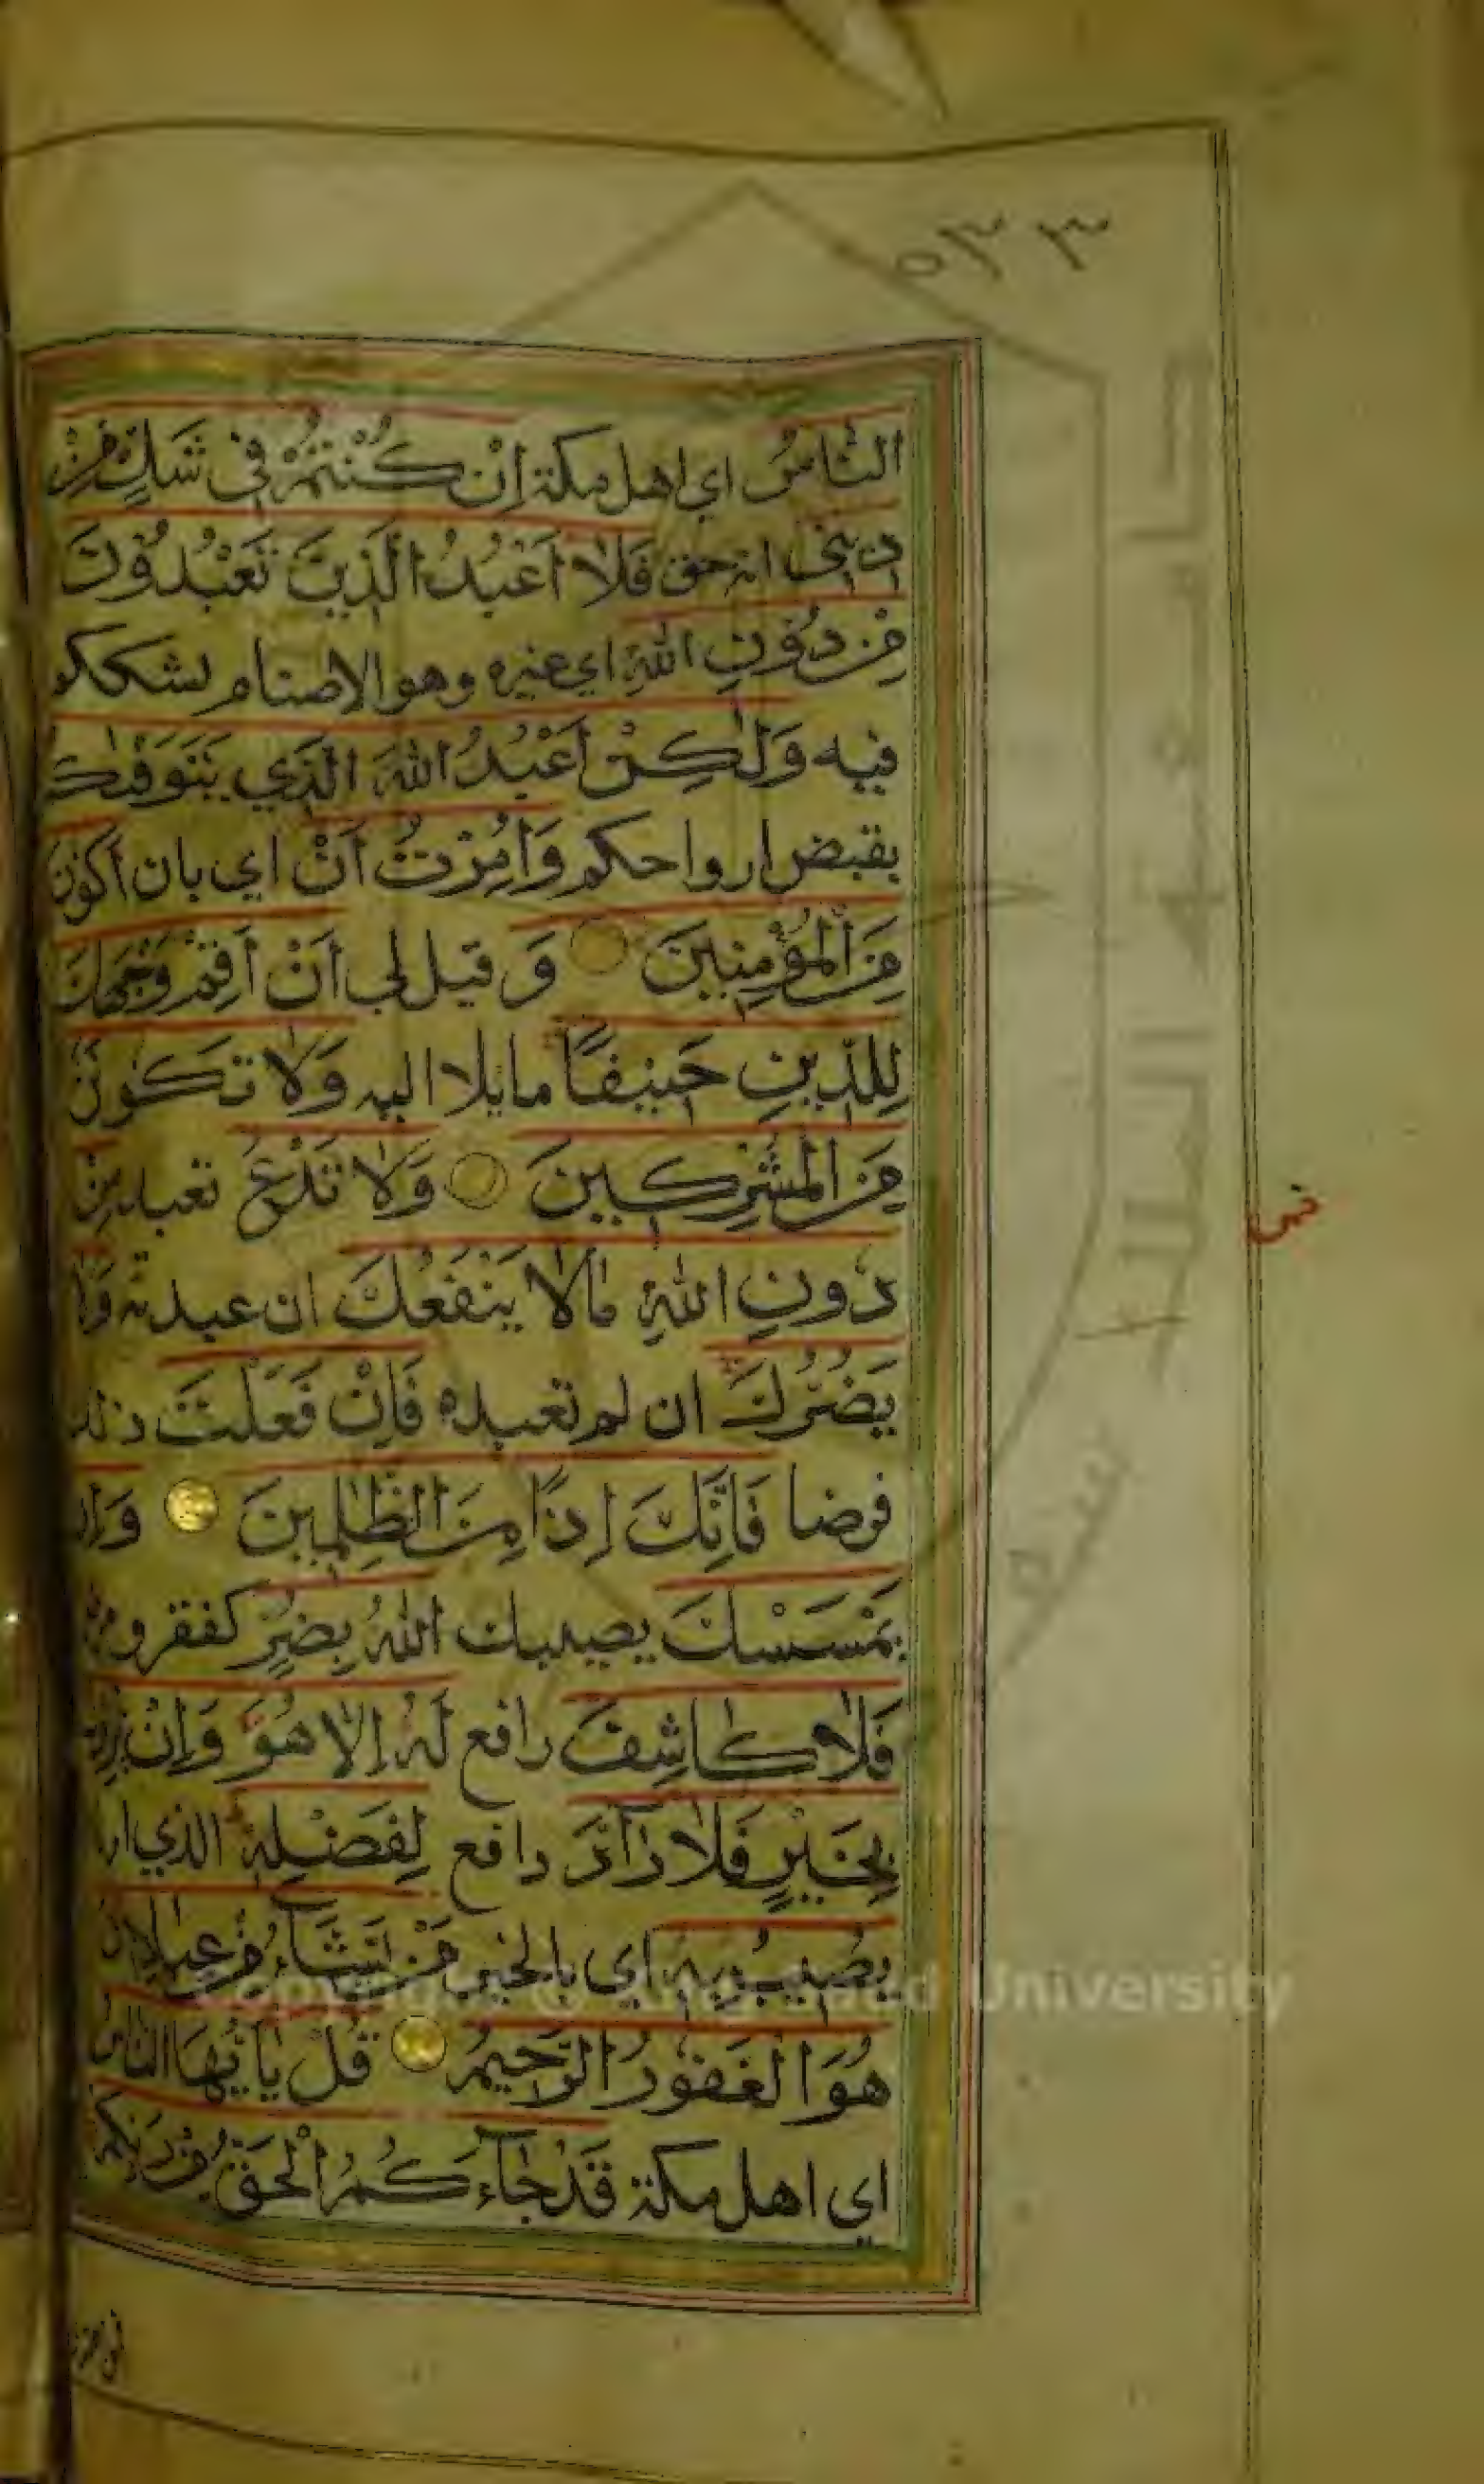 ٥٣٣
النَّاسُ اي اهل مكة اِنْ كُنْتُمْ فِي شَكٍّ مِنْ
دِينِي انه حق فَلَا اَعْبُدُ الَّذِينَ تَعْبُدُوْنَ
مِنْ دُوْنِ اللّٰهِ اي غيره وهو الاصنام لشككم
فيه وَلٰكِنْ اَعْبُدُ اللّٰهَ الَّذِي يَتَوَفّٰىكُمْ
بقبض ارواحكم وَاُمِرْتُ اَنْ اي بان اَكُوْنَ
مِنَ الْمُؤْمِنِينَ وَ قيل لي اَنْ اَقِمْ وَجْهَكَ
لِلدِّينِ حَنِيفًا مايلا اليه وَلَا تَكُونَنَّ
مِنَ الْمُشْرِكِينَ وَلَا تَدْعُ تعبد مِنْ
دُونِ اللّٰهِ مَا لَا يَنْفَعُكَ ان عبدته وَلَا
يَضُرُّكَ ان لم تعبده فَاِنْ فَعَلْتَ ذلك
فرضا فَاِنَّكَ اِذًا مِنَ الظّٰلِمِينَ وَاِنْ
يَمْسَسْكَ يصيبك اللّٰهُ بِضُرٍّ كفقر ومرض
فَلَا كَاشِفَ رافع لَهُ اِلَّا هُوَ وَاِنْ يُرِدْكَ
بِخَيْرٍ فَلَا رَآدَّ دافع لِفَضْلِهِ الذي ارا
يُصِيبُ بِهِ اي بالخير مَنْ يَشَآءُ مِنْ عِبَادِهِ
هُوَ الْغَفُوْرُ الرَّحِيمُ قُلْ يَا اَيُّهَا النَّاسُ
اي اهل مكة قَدْ جَآءَكُمُ الْحَقُّ مِنْ رَبِّكُمْ
جامعة الملك سعود
Copyright © King Saud University